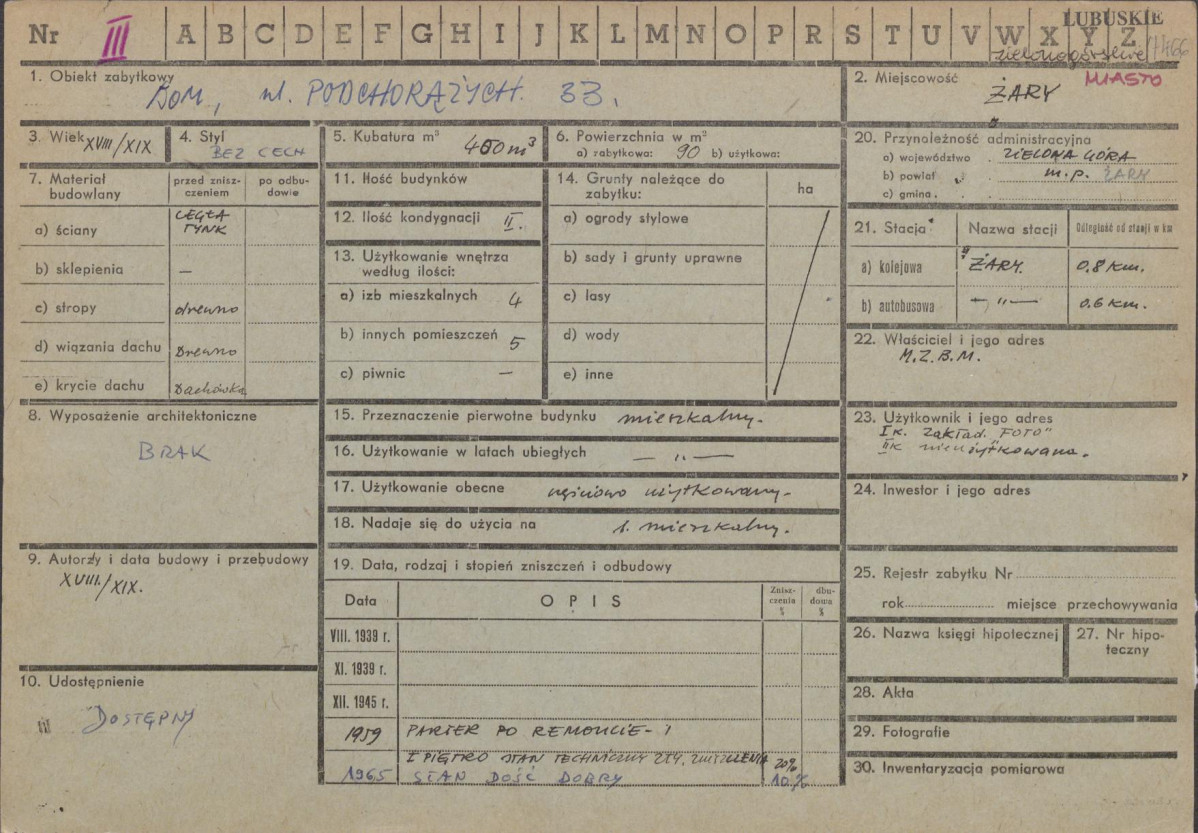 Nr III A B C D E F G H I J K L M N O P R S T U V W X Y Z
LUBUSKIE
zielonogórskie/1466
1. Obiekt zabytkowy
DOM, ul. PODCHORĄŻYCH. 33.
2. Miejscowość
MIASTO
ŻARY
3. Wiek XVIII/XIX
4. Styl
BEZ CECH
5. Kubatura m³ 450 m³
6. Powierzchnia w m²
a) zabytkowa: 90 b) użytkowa:
7. Materiał budowlany
przed znisz-
czeniem
po odbu-
dowie
a) ściany CEGŁA
TYNK
b) sklepienia —
c) stropy drewno
d) wiązania dachu Drewno
e) krycie dachu Dachówka
8. Wyposażenie architektoniczne
BRAK
9. Autorzy i data budowy i przebudowy
XVIII./XIX.
10. Udostępnienie
DOSTĘPNY
11. Ilość budynków
12. Ilość kondygnacji II.
13. Użytkowanie wnętrza
według ilości:
a) izb mieszkalnych 4
b) innych pomieszczeń 5
c) piwnic —
14. Grunty należące do
zabytku:
ha
a) ogrody stylowe
b) sady i grunty uprawne
c) lasy
d) wody
e) inne
15. Przeznaczenie pierwotne budynku mieszkalny.
16. Użytkowanie w latach ubiegłych — „ —
17. Użytkowanie obecne częściowo użytkowany.
18. Nadaje się do użycia na b. mieszkalny.
19. Data, rodzaj i stopień zniszczeń i odbudowy
Data
OPIS
Znisz-
czenia
%
dbu-
dowa
%
VIII. 1939 r.
XI. 1939 r.
XII. 1945 r.
1959 PARTER PO REMONCIE -
I PIĘTRO STAN TECHNICZNY ZŁY. ZNISZCZENIA 20%
1965 STAN DOŚĆ DOBRY 10%
20. Przynależność administracyjna
a) województwo ZIELONA GÓRA
b) powiat m.p. ŻARY
c) gmina
21. Stacja
Nazwa stacji
Odległość od stacji w km
a) kolejowa ŻARY. 0.8 km.
b) autobusowa — „ — 0.6 km.
22. Właściciel i jego adres
M.Z.B.M.
23. Użytkownik i jego adres
I K. Zakład. "FOTO"
II K nieużytkowana.
24. Inwestor i jego adres
25. Rejestr zabytku Nr
rok miejsce przechowywania
26. Nazwa księgi hipotecznej
27. Nr hipo-
teczny
28. Akta
29. Fotografie
30. Inwentaryzacja pomiarowa